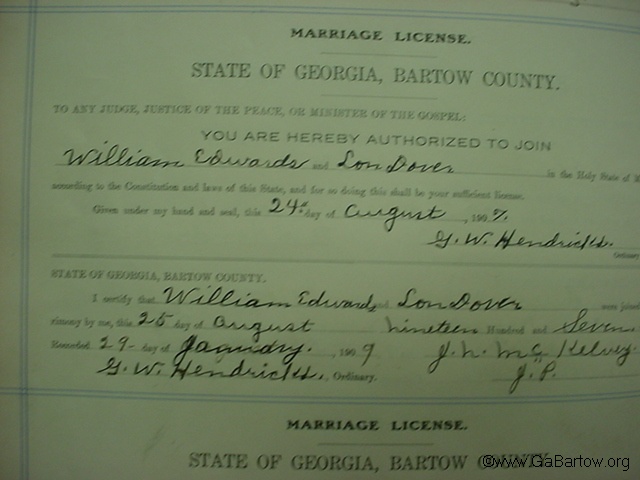 MARRIAGE LICENSE.
STATE OF GEORGIA, BARTOW COUNTY.
TO ANY JUDGE, JUSTICE OF THE PEACE, OR MINISTER OF THE GOSPEL:
YOU ARE HEREBY AUTHORIZED TO JOIN
William Edwards and Lon Dover in the Holy State of M
according to the Constitution and laws of this State, and for so doing this shall be your sufficient license.
Given under my hand and seal, this 24th day of August, 1907.
G. W. Hendricks.
Ordinary
STATE OF GEORGIA, BARTOW COUNTY.
I certify that William Edwards and Lon Dover were joined
rimony by me, this 25 day of August nineteen Hundred and Seven
Recorded 29 day of January. , 1909 J. H. McKelvey
G. W. Hendricks., Ordinary. J. P.
MARRIAGE LICENSE.
STATE OF GEORGIA, BARTOW COUNTY
©www.GaBartow.org